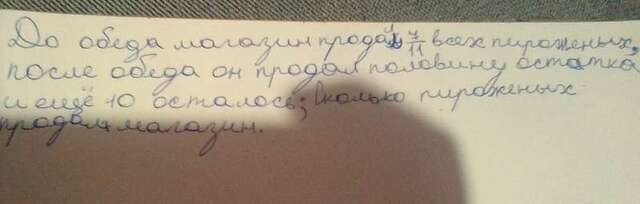 До обеда магазин продал 7/11 всех пироженых,
после обеда он продал половину остатка
и ещё 10 осталось; Сколько пироженых
продал магазин.